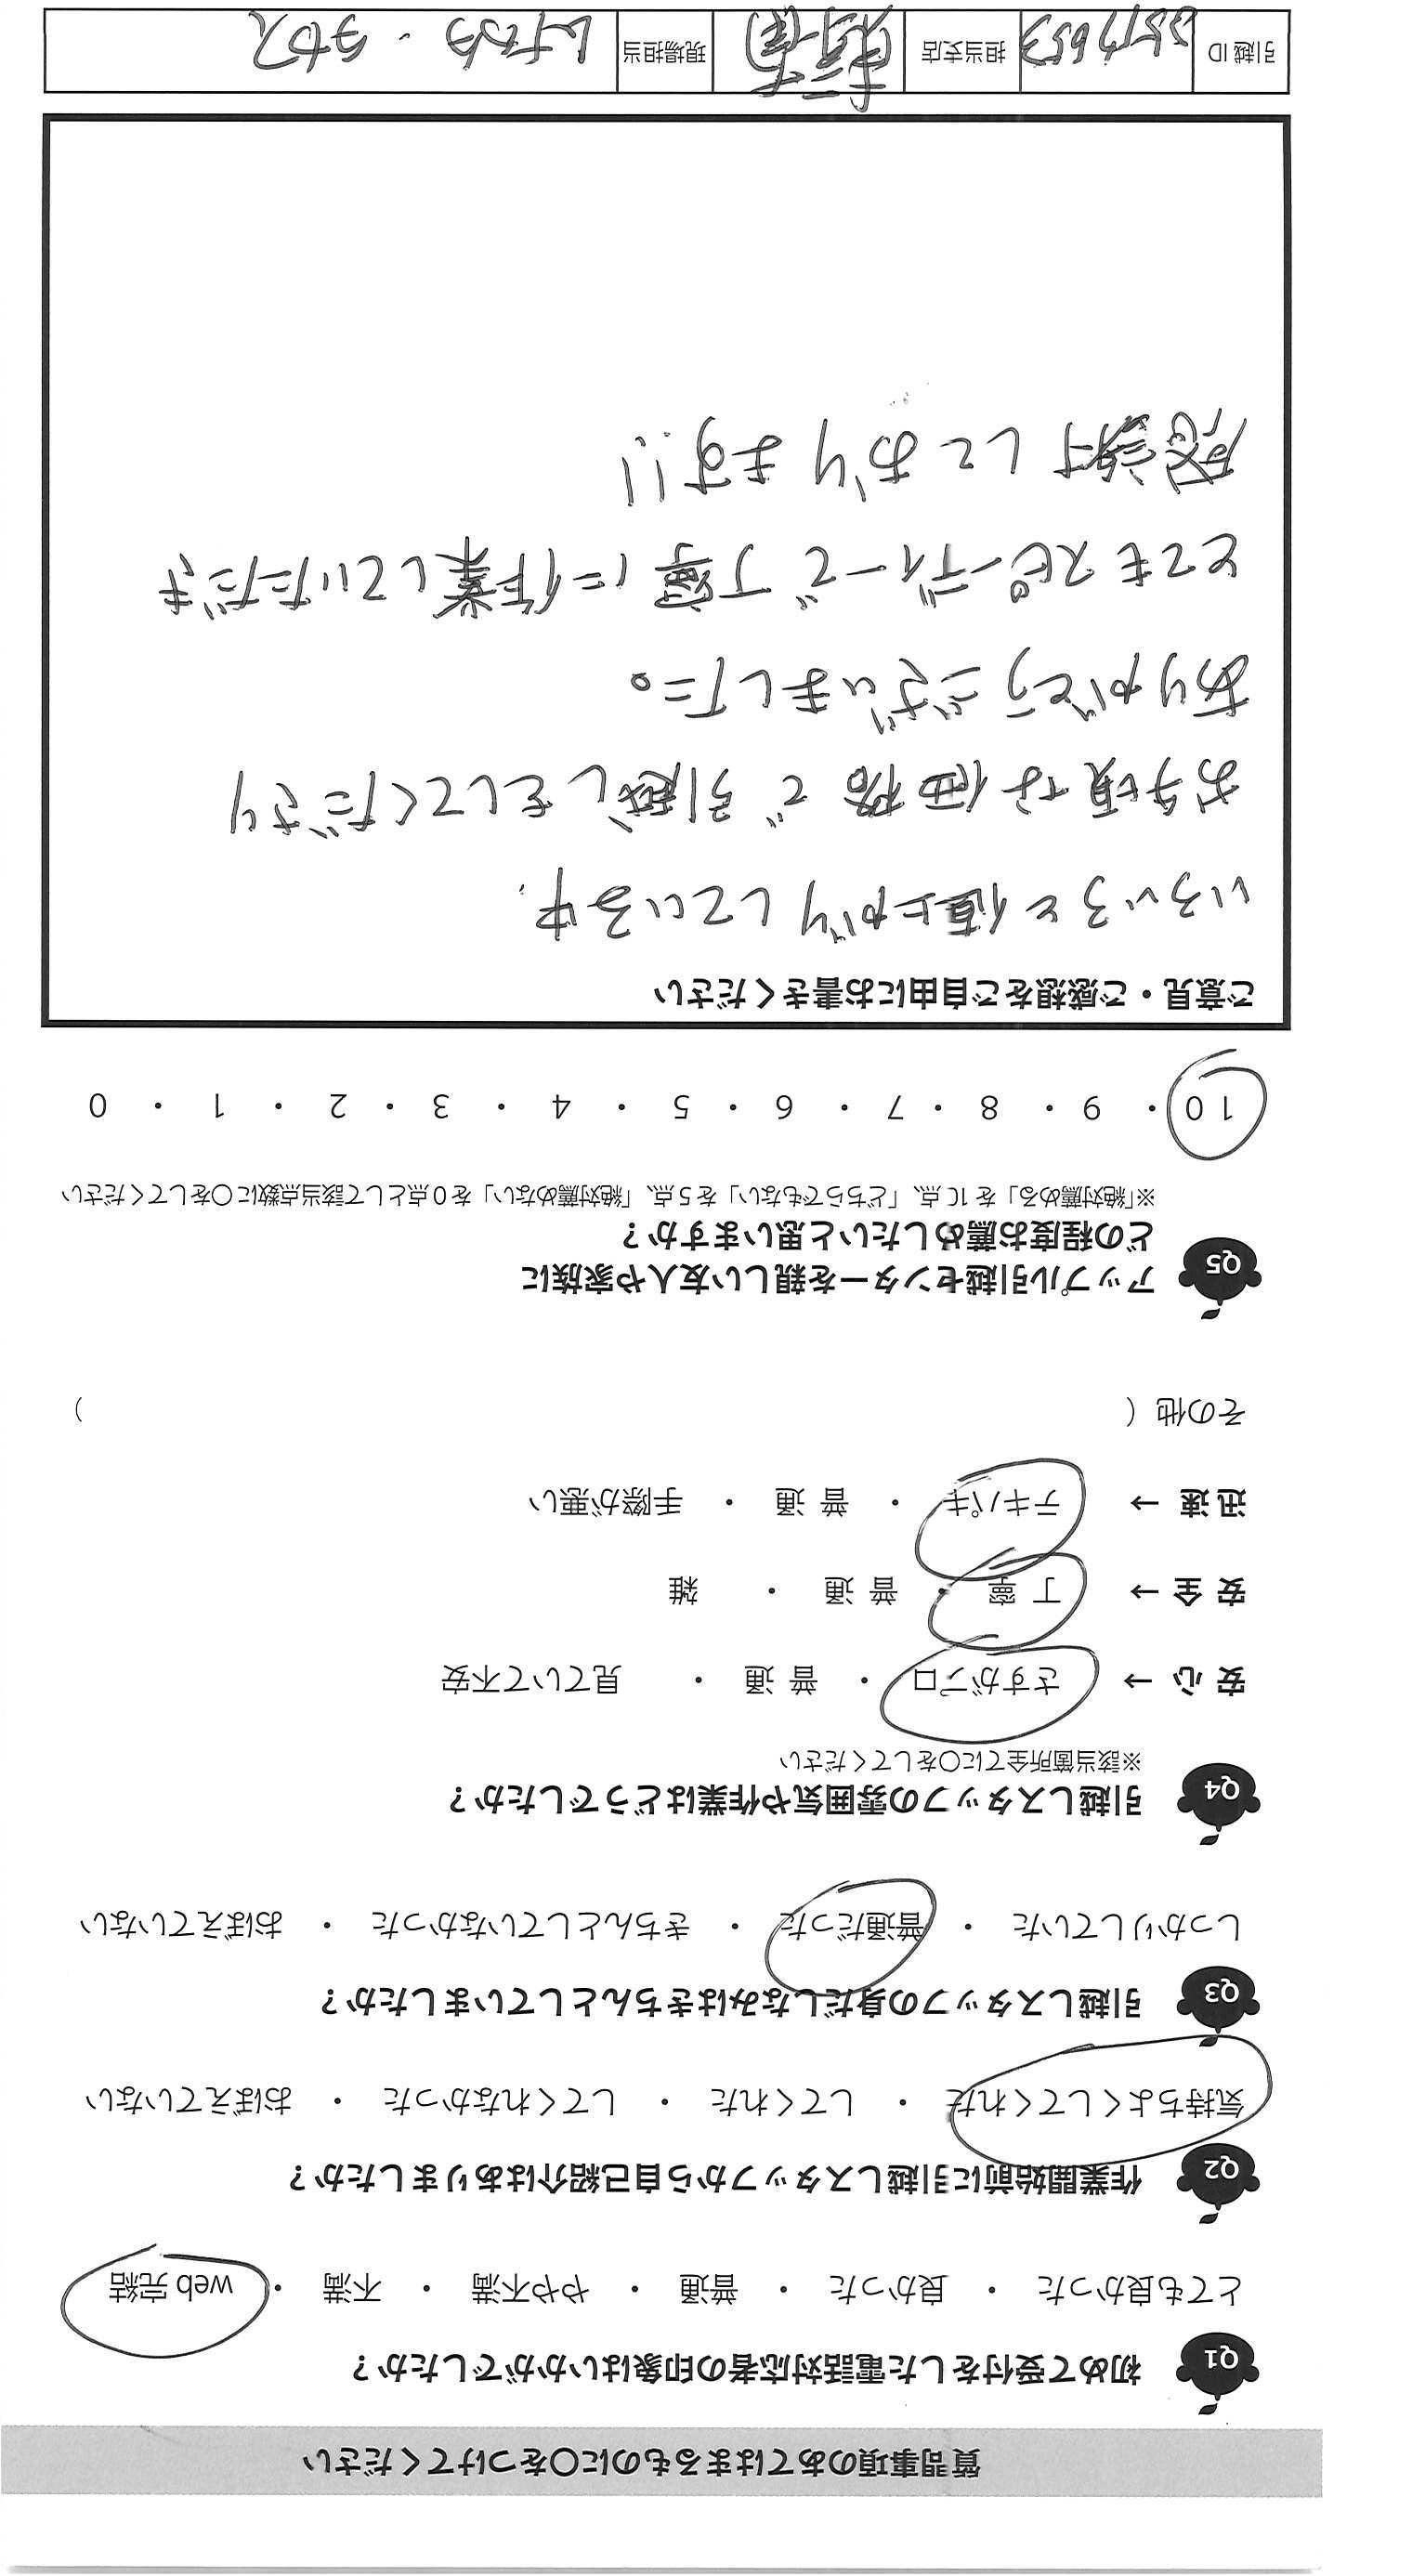 質問事項のあてはまるものに〇をつけてください
Q1 初めて受付をした電話対応者の印象はいかがでしたか？
とても良かった ・ 良かった ・ 普通 ・ やや不満 ・ 不満 ・ web 完結
Q2 作業開始前に引越しスタッフから自己紹介はありましたか？
気持ちよくしてくれた ・ してくれた ・ してくれなかった ・ おぼえていない
Q3 引越しスタッフの身だしなみはきちんとしていましたか？
しっかりしていた ・ 普通だった ・ きちんとしていなかった ・ おぼえていない
Q4 引越しスタッフの雰囲気や作業はどうでしたか？
※該当箇所全てに〇をしてください
安心 → さすがプロ ・ 普通 ・ 見ていて不安
安全 → 丁寧 ・ 普通 ・ 雑
迅速 → テキパキ ・ 普通 ・ 手際が悪い
その他（ ）
Q5 アップル引越センターを親しい友人や家族に
どの程度お薦めしたいと思いますか？
※「絶対薦める」を10点、「どちらでもない」を5点、「絶対薦めない」を0点として該当点数に〇をしてください
10 ・ 9 ・ 8 ・ 7 ・ 6 ・ 5 ・ 4 ・ 3 ・ 2 ・ 1 ・ 0
ご意見・ご感想をご自由にお書きください
いろいろと値上がりしている中、
お手頃な価格で引越しをしてくださり
ありがとうございました。
とてもスピーディーで丁寧に作業していただき
感謝しております!!
引越ID 担当支店 現場担当